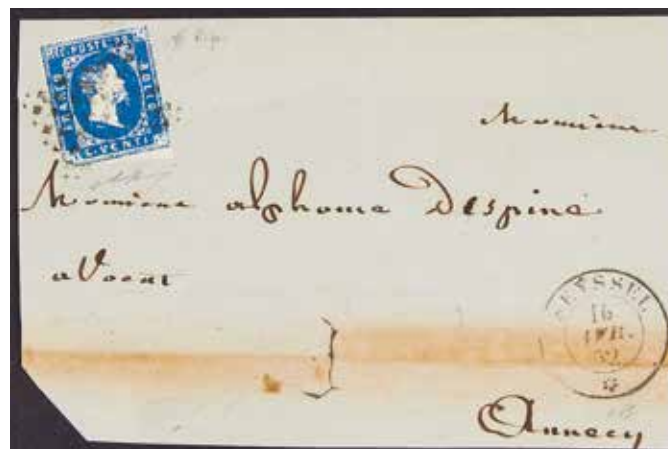 C. POSTE 20
FRANCO
BOLLO
C. VENTI
Monsieur
Monsieur alphonse Despine
avocat
SEYSSEL
16
AVR.
52
Annecy